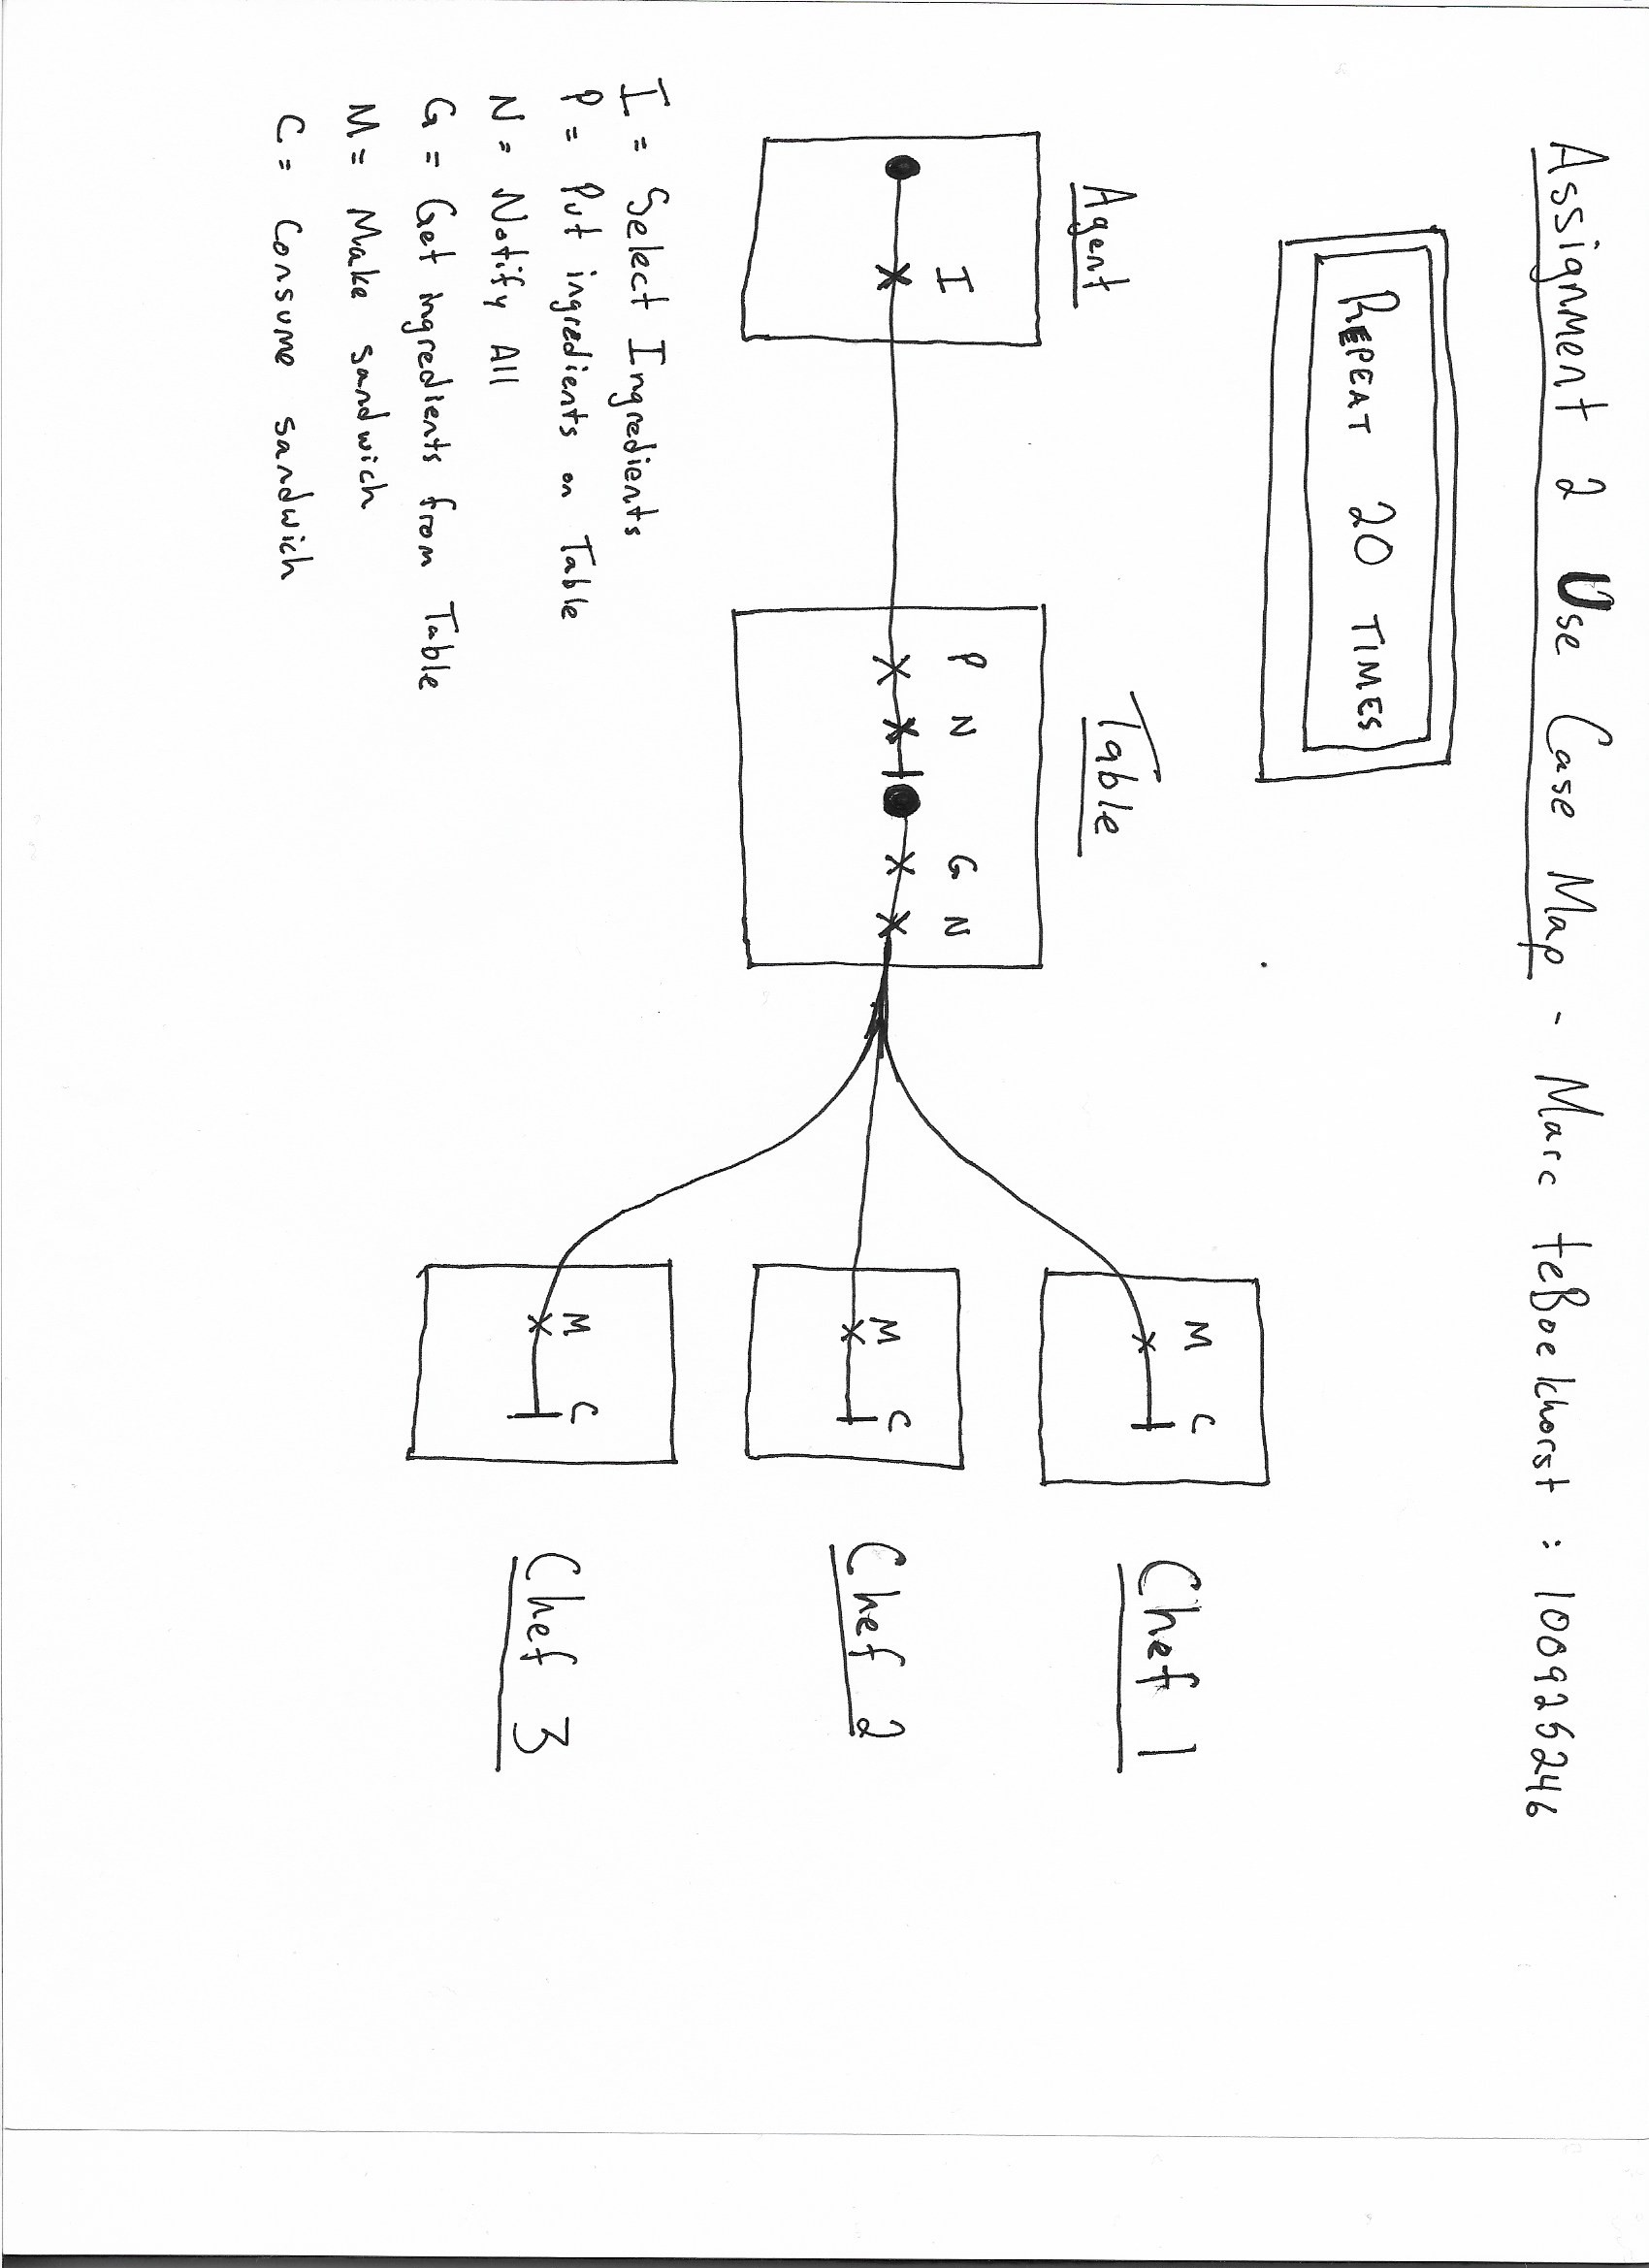 Assignment 2 Use Case Map - Marc teBoekhorst : 100925246
REPEAT 20 TIMES
M C
Chef 1
Agent
Table
I
P N G N
M C
Chef 2
I = Select Ingredients
P = Put ingredients on Table
N = Notify All
G = Get ingredients from Table
M = Make sandwich
C = Consume sandwich
M C
Chef 3